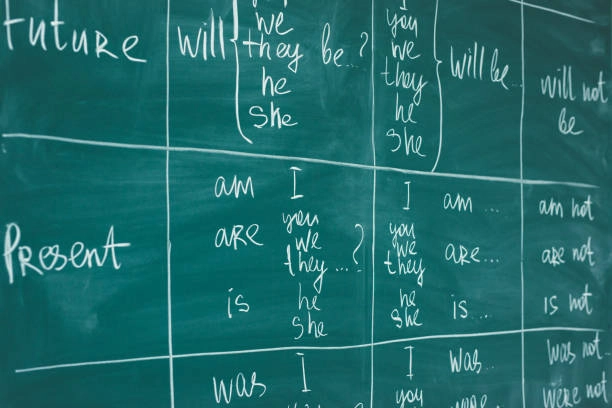 Future
will
we
they be...?
he
she
you
we
they
he
she
will be...
will not
be
Present
am I
are you
we
they...?
is he
she
I am...
you
we are...
they
he
she is...
am not
are not
is not
was I
I was...
you
was not
were not